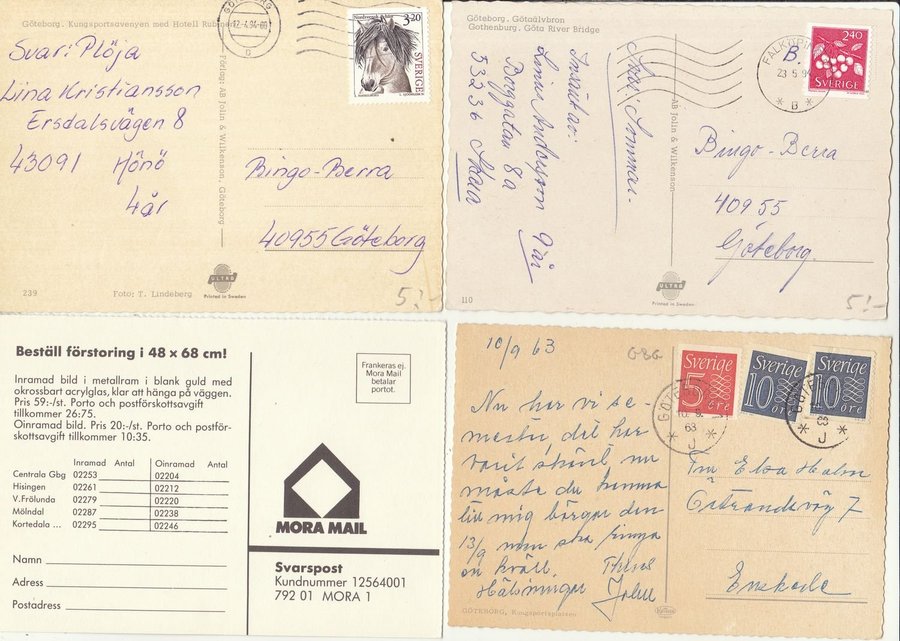 Göteborg. Kungsportsavenyen med Hotell
GÖTEBORG
12-4.94-88
C
Nordsvensk
3.20
SVERIGE
Svar: Plöja
Lina Kristiansson
Ersdalsvägen 8
43091 Hönö
4 år
Förlag: AB Jolin & Wilkenson - Göteborg
Bingo-Berra
40955 Göteborg
ULTRA
Printed in Sweden
239
Foto: T. Lindeberg
5:-
Göteborg. Götaälvbron
Gothenburg. Göta River Bridge
FALKÖPING
23 5.94
* B *
B.
2.40
SVERIGE
Svar: Sommar
Linus Andersson 9 år
Borggatan 8a
53236 Skara
AB Jolin & Wilkenson
Bingo-Berra
40955
Göteborg.
ULTRA
Printed in Sweden
110
5:-
Beställ förstoring i 48 x 68 cm!
Inramad bild i metallram i blank guld med
okrossbart acrylglas, klar att hänga på väggen.
Pris 59:-/st. Porto och postförskottsavgift
tillkommer 26:75.
Oinramad bild. Pris 20:-/st. Porto och postför-
skottsavgift tillkommer 10:35.
Inramad Antal Oinramad Antal
Centrala Gbg 02253 02204
Hisingen 02261 02212
V.Frölunda 02279 02220
Mölndal 02287 02238
Kortedala ... 02295 02246
Namn
Adress
Postadress
Frankeras ej.
Mora Mail
betalar
portot.
MORA MAIL
Svarspost
Kundnummer 12564001
792 01 MORA 1
10/9 63
GBG
Sverige
5
öre
Sverige
10
öre
Sverige
10
öre
63
* J *
63
* J *
Nu har vi se-
mester, det har
varit skönt nu
måste du komma
till mig börjar den
13/9
Hälsningar
Fru Elsa Holm
7
Enskede
GÖTEBORG, Kungsportsplatsen